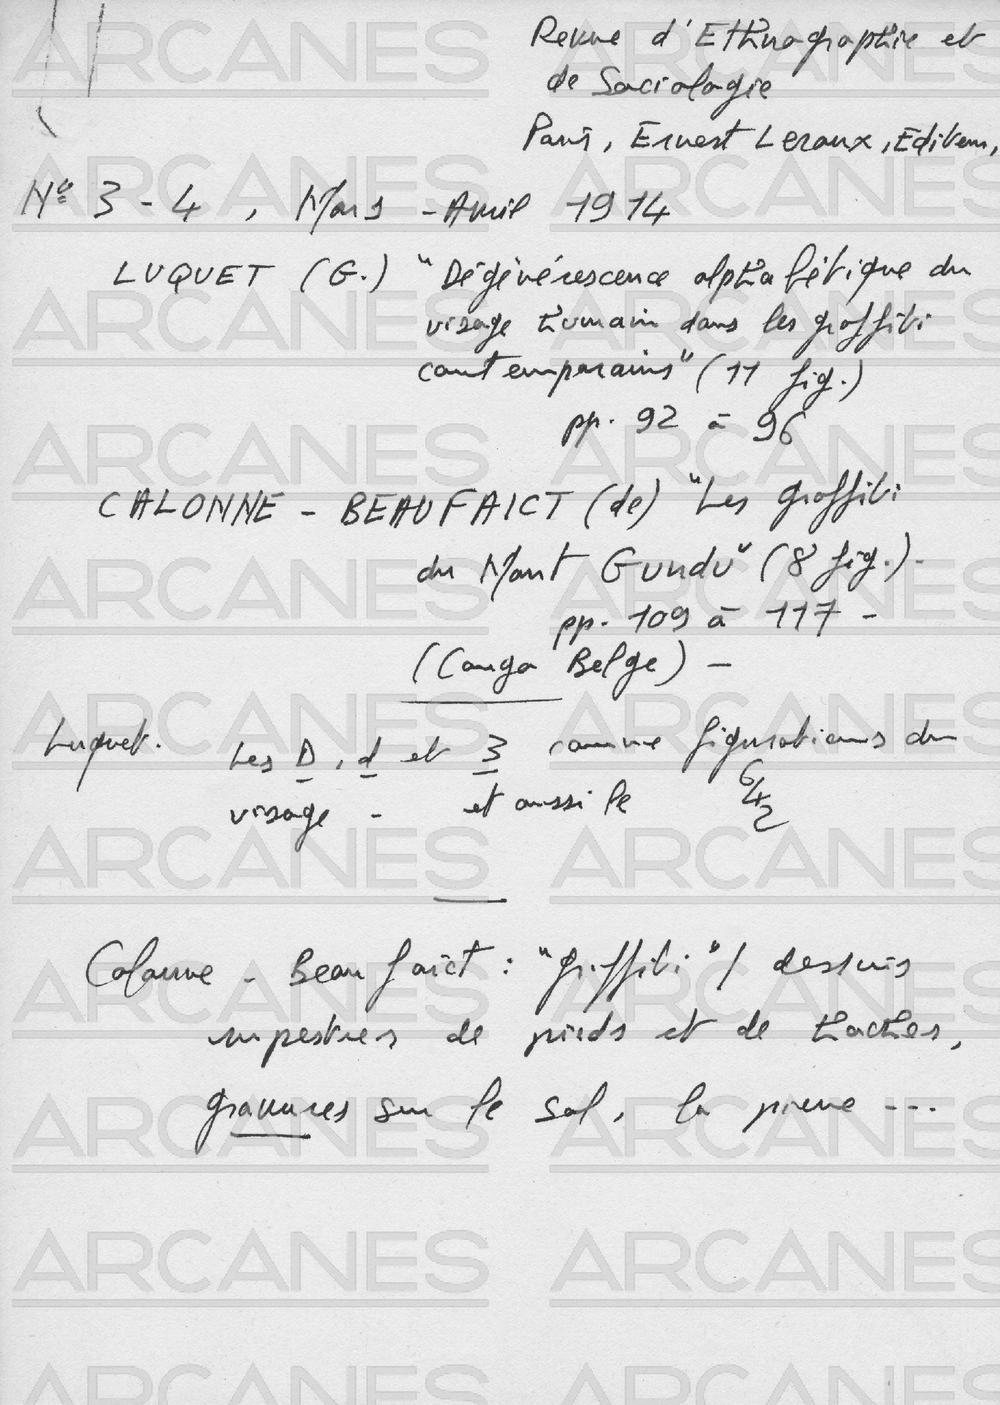 Revue d'Ethnographie et
de Sociologie
Paris, Ernest Leroux, Editeur,
Nº 3 - 4, Mars - Avril 1914
LUQUET (G.) "Dégénérescence alphabétique du
visage humain dans les graffiti
contemporains" (11 fig.)
pp. 92 à 96
CALONNE - BEAUFAICT (de) "Les graffiti
du Mont Gundu" (8 fig.) -
pp. 109 à 117 -
(Congo Belge) -
Luquet. Les D, d et 3 comme figurations du
visage - et aussi le 6/4/2
Calonne - Beaufaict : "graffiti" / dessins
rupestres de pieds et de haches,
gravures sur le sol, la pierre ...
ARCANES